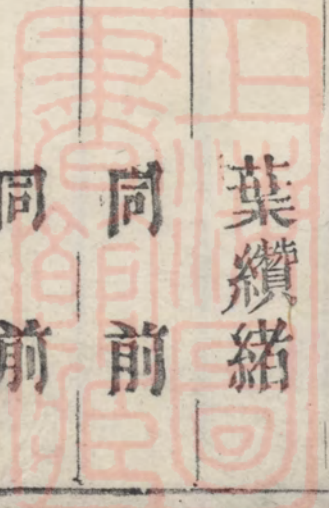 葉纘緒
同前
同前